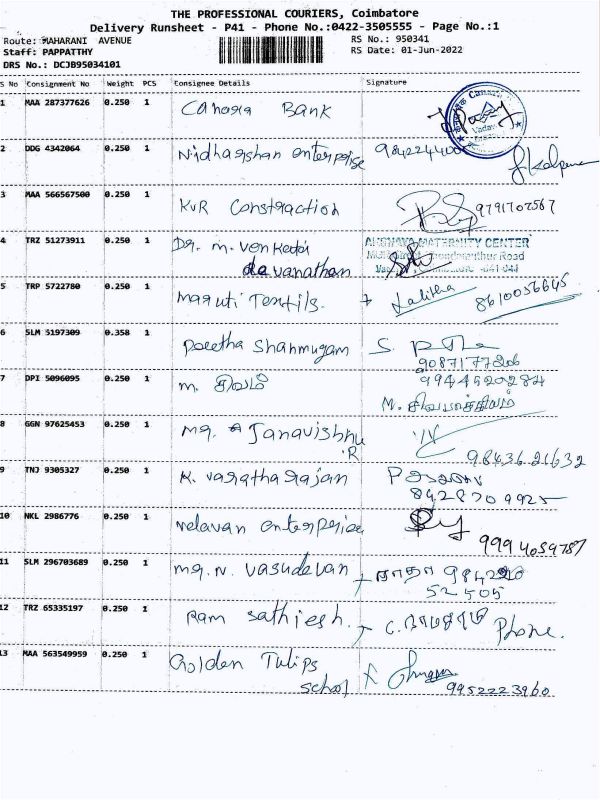 THE PROFESSIONAL COURIERS, Coimbatore
Delivery Runsheet - P41 - Phone No.:0422-3505555 - Page No.:1
Route: MAHARANI AVENUE
RS No.: 950341
Staff: PAPPATTHY
RS Date: 01-Jun-2022
DRS No.: DCJB95034101
S No Consignment No Weight PCS Consignee Details Signature
1 MAA 287377626 0.250 1 Canara Bank
2 DDG 4342064 0.250 1 Nidharshan enterprise
3 MAA 566567500 0.250 1 KVR Constraction 9791702567
4 TRZ 51273911 0.250 1 Dr. m. venkata MATERNITY CENTER
davanathan
5 TRP 5722780 0.250 1 Maruti Textils. Lalitha 8610056645
6 SLM 5197309 0.358 1 Peetha Shanmugam
7 DPI 5096095 0.250 1 m. சிவம்
8 GGN 97625453 0.250 1 Mr. Janavishnu
R 98436 21632
9 TNJ 9305327 0.250 1 K. varatharajan
842870 9925
10 NKL 2986776 0.250 1 velavan enterprise
999 4059787
11 SLM 296703689 0.250 1 mr. N. vasudevan ராதா
52505
12 TRZ 65335197 0.250 1 Ram sathiesh. Phone.
13 MAA 563549959 0.250 1 Golden Tulips
school 9952223960